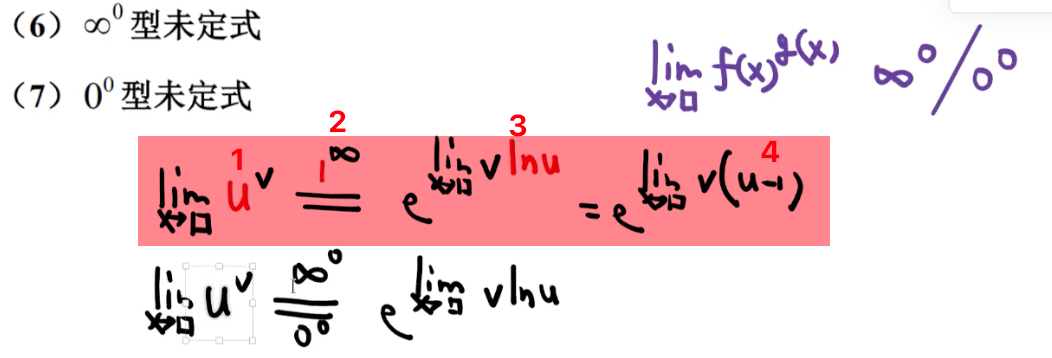 (6) ∞⁰ 型未定式
(7) 0⁰ 型未定式
lim x→□ f(x)^g(x) ∞⁰/0⁰
1 2 3 4
lim x→□ u^v = 1^∞ e^(lim x→□ v ln u) = e^(lim x→□ v(u-1))
lim x→□ u^v = ∞⁰ 0⁰ e^(lim x→□ v ln u)